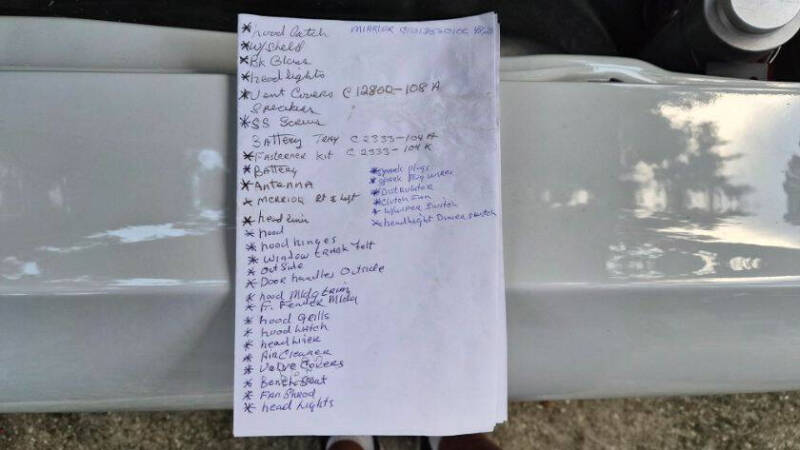 * hood Latch
* W/Sheld
* Bk Glass
* head lights
* Vent Covers C 12800-108 A
Speakers
* SS Screws
Battery Tray C 2333-104 A
* Fastener Kit C 2333-104 K
* Battery
* Antenna
* Merrior Rt & Left
* head
* hood
* hood hinges
* Window felt
* outside
* Door handles Outside
* hood Mldg trim
* F. Fender Mldg
* hood Grills
* hood Latch
* head
* Air Cleaner
* Valve Covers
* Bench Seat
* Fan Shrod
* head Lights
Mirrior
* Spark plugs
* Spark Plug wires
* Distributor
* Clutch Fan
* Whiper Switch
* headlight Dimer Switch